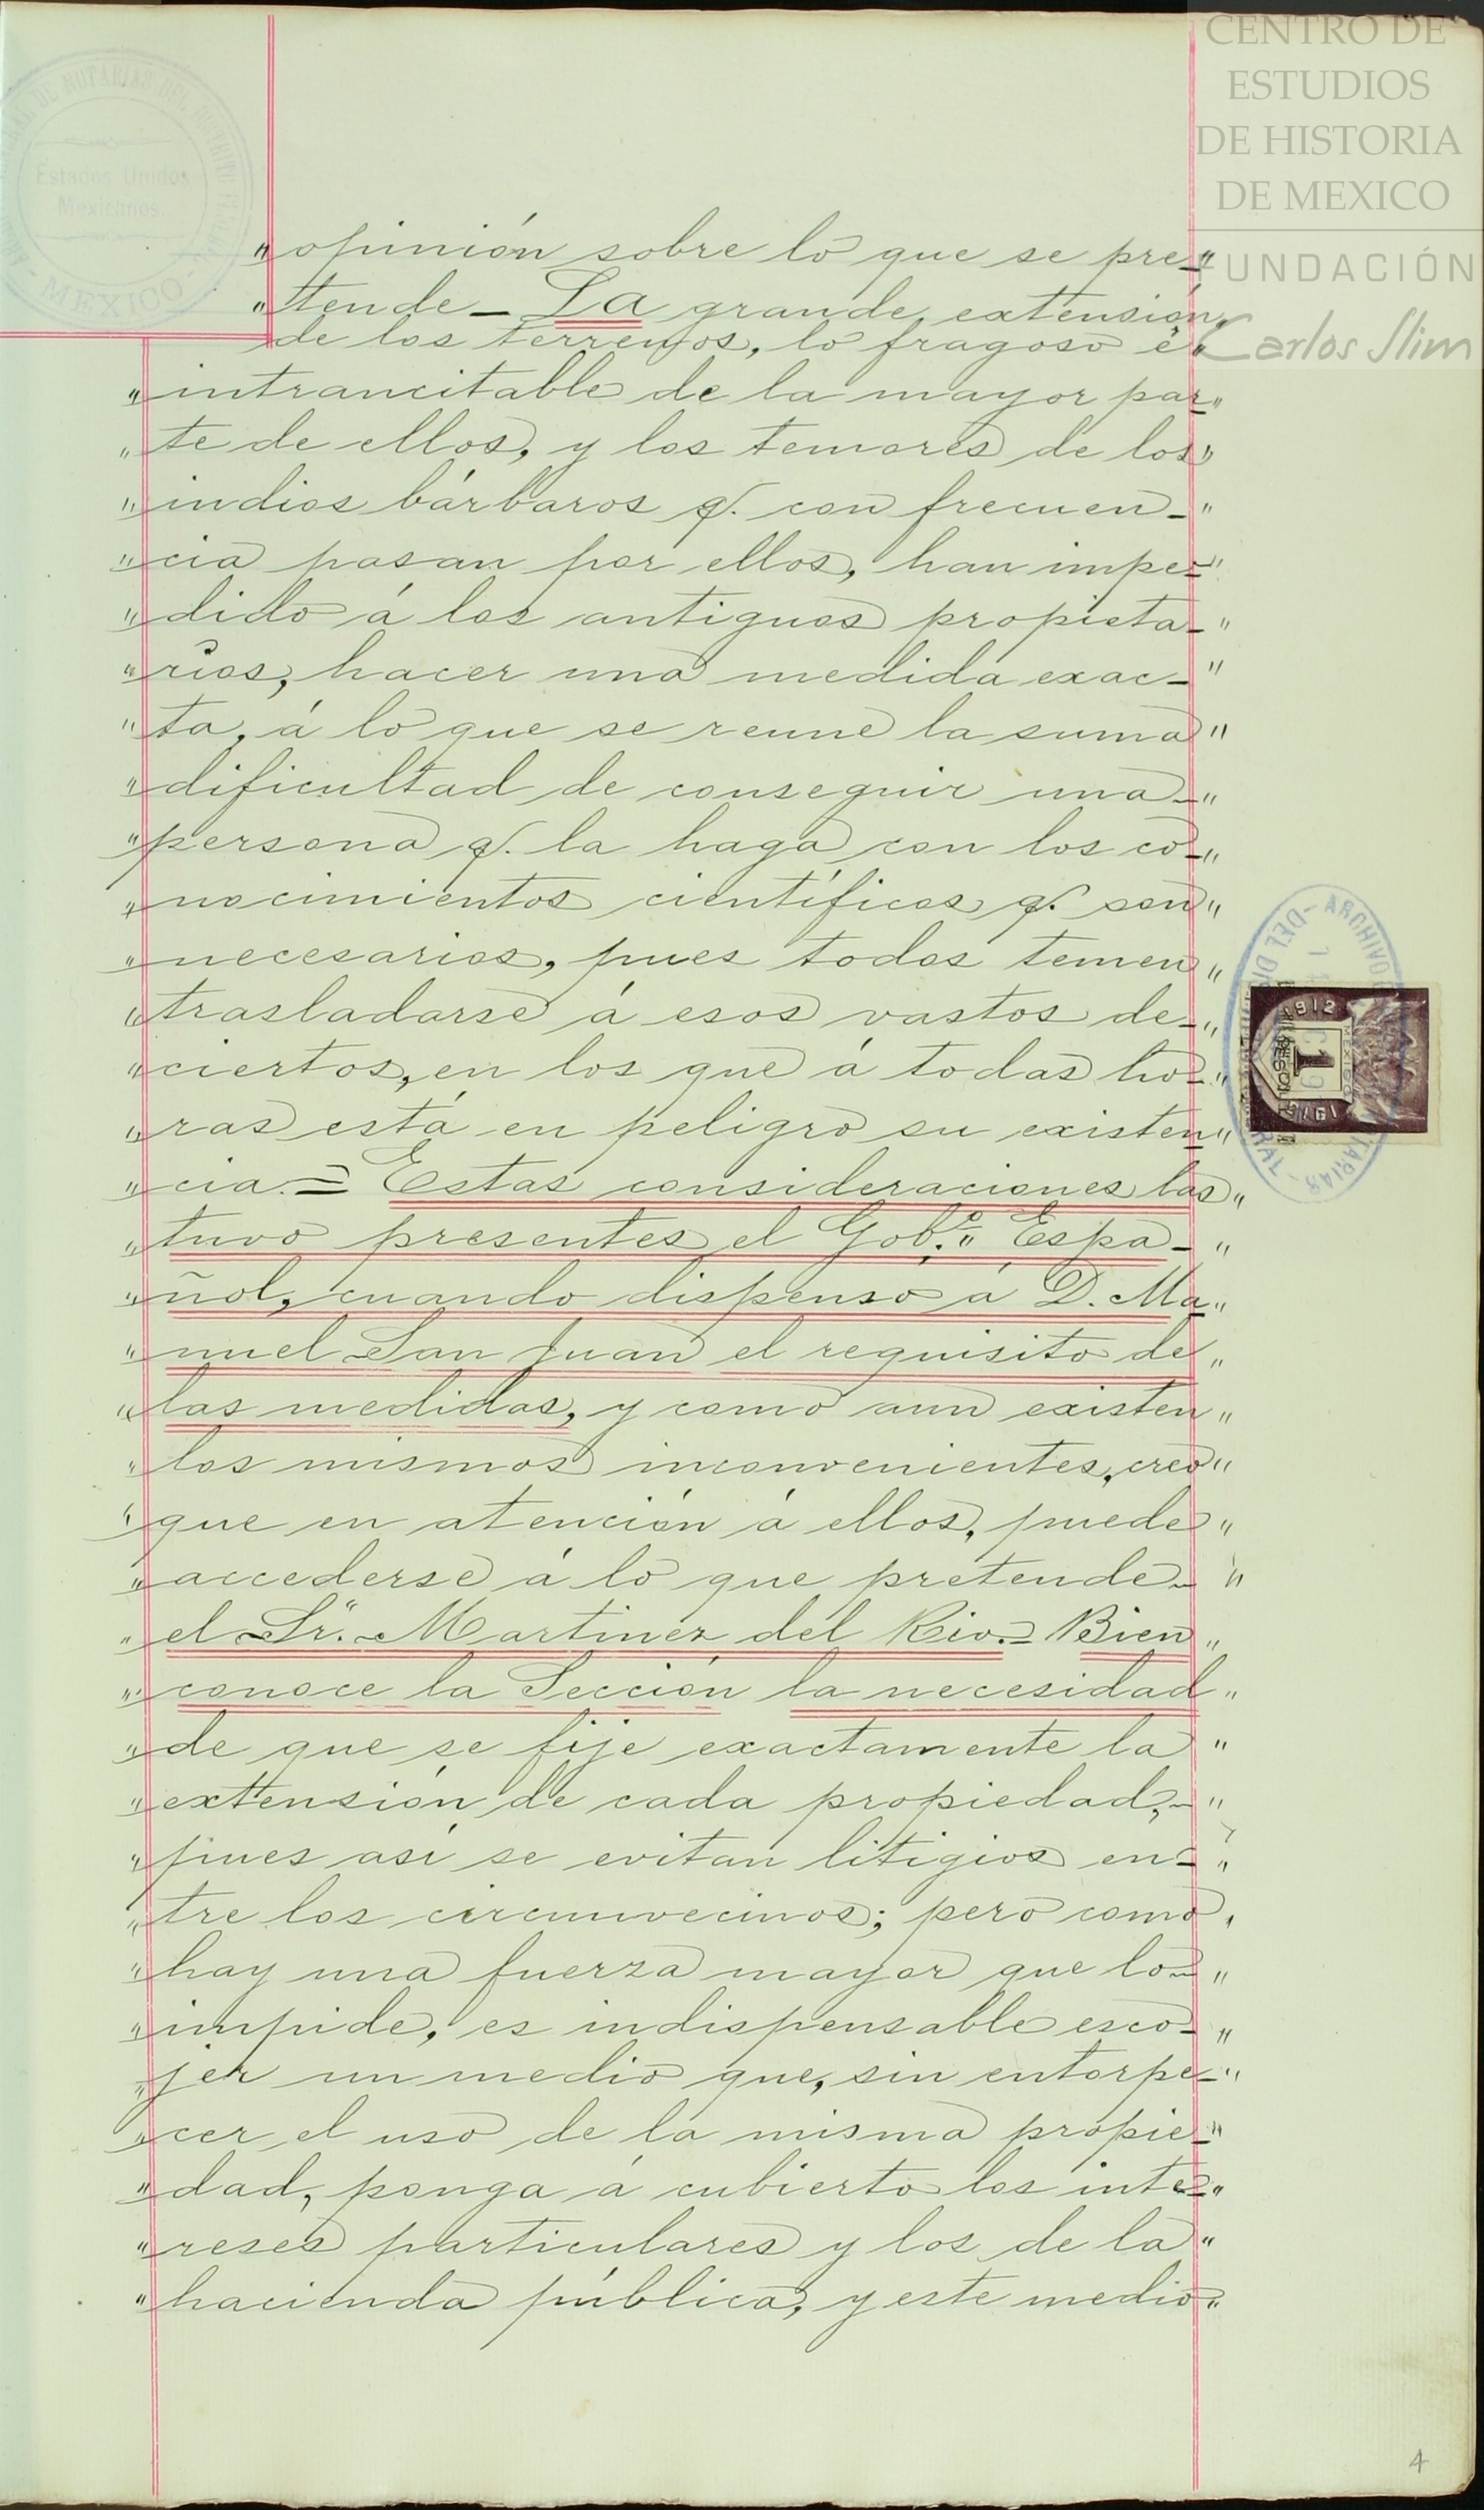 CENTRO DE
ESTUDIOS
DE HISTORIA
DE MEXICO
FUNDACIÓN
Carlos Slim
Estados Unidos
Mexicanos.
MEXICO
" opinión sobre lo que se pre- "
" tende - La grande extensión "
de los terrenos, lo fragoso é "
" intrancitable de la mayor par- "
" te de ellos, y los temores de los "
" indios bárbaros q. con frecuen- "
" cia pasan por ellos, han impe- "
" dido á los antiguos propieta- "
" rios, hacer una medida exac- "
" ta, á lo que se reune la suma "
" dificultad de conseguir una- "
" persona q. la haga con los co- "
" nocimientos científicos q. son "
" necesarios, pues todos temen "
" trasladarse á esos vastos de- "
" ciertos, en los que á todas ho- "
" ras está en peligro su existen "
" cia.= Estas consideraciones las "
" tuvo presentes el Gob.º Espa- "
" ñol, cuando dispensó á D. Ma "
" nuel San Juan el requisito de "
" las medidas, y como aun existen "
" los mismos inconvenientes, creo "
" que en atención á ellos, puede "
" accederse á lo que pretende- "
" el Sr. Martinez del Rio.= Bien "
" conoce la Sección la necesidad "
" de que se fije exactamente la "
" extensión de cada propiedad,- "
" pues así se evitan litigios en- "
" tre los circunvecinos; pero como "
" hay una fuerza mayor que lo- "
" impide, es indispensable esco- "
" jer un medio que, sin entorpe- "
" cer el uso de la misma propie- "
" dad, ponga á cubierto los inte- "
" reses particulares y los de la "
" hacienda pública, y este medio "
1912
MEXICO
1
1913
4